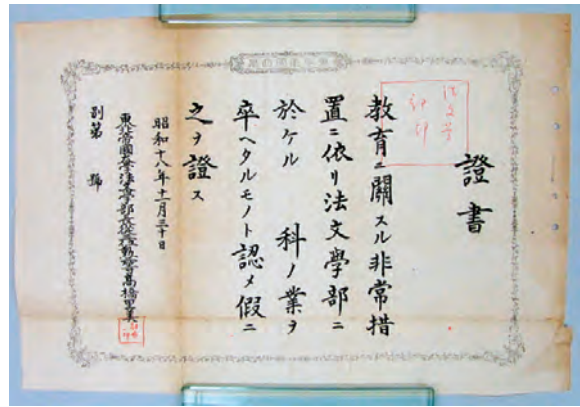 證書
教育ニ關スル非常措
置ニ依リ法文學部ニ
於ケル 科ノ業ヲ
卒ヘタルモノト認メ假ニ
之ヲ證ス
昭和十八年十一月三十日
東北帝國大學法文學部長 高橋里美
別第 號